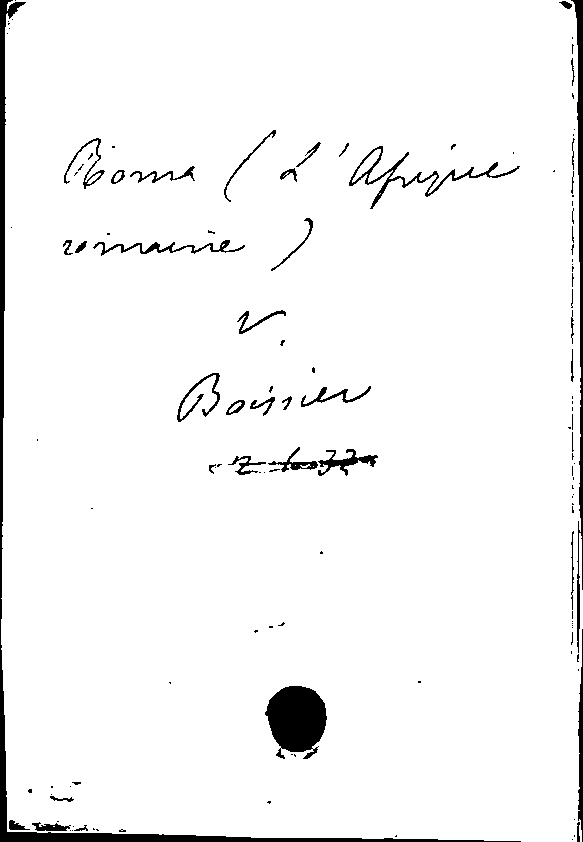 Roma (L'Afrique
romaine)
V.
Boissier